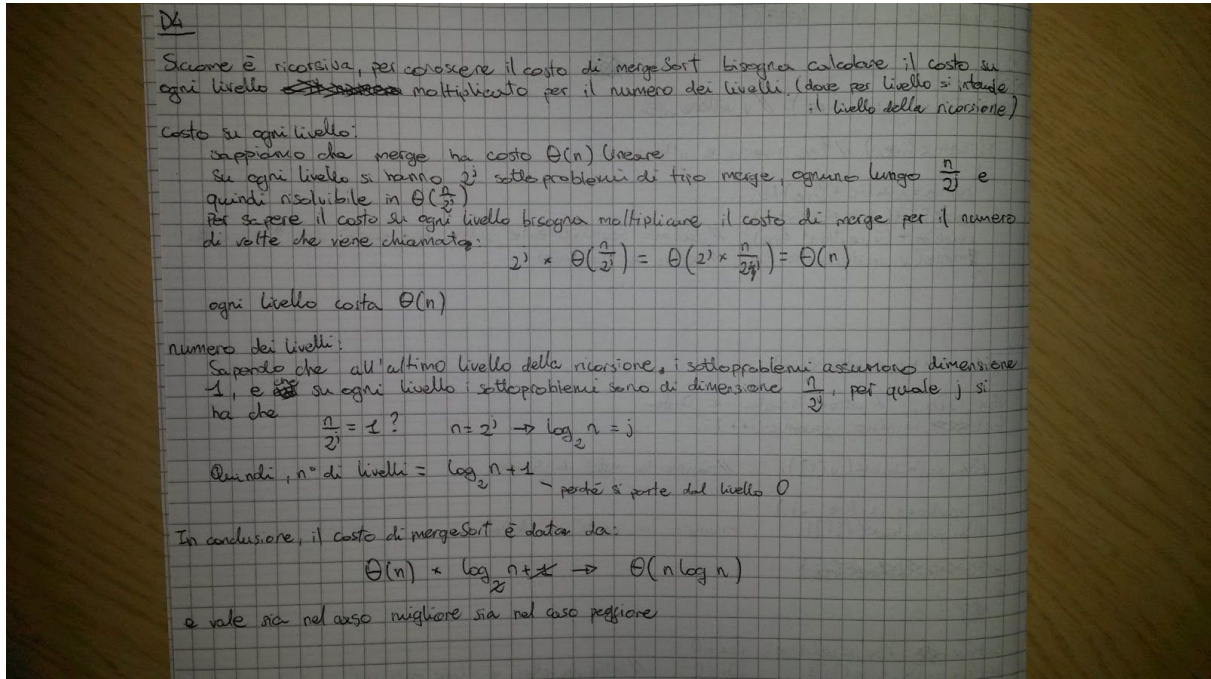 D4
Siccome è ricorsiva, per conoscere il costo di mergeSort bisogna calcolare il costo su
ogni livello moltiplicato per il numero dei livelli (dove per livello si intende
il livello della ricorsione)
costo su ogni livello:
sappiamo che merge ha costo Θ(n) lineare
su ogni livello si hanno 2^j sottoproblemi di tipo merge, ognuno lungo n/2^j e
quindi risolvibile in Θ(n/2^j)
Per sapere il costo su ogni livello bisogna moltiplicare il costo di merge per il numero
di volte che viene chiamato:
2^j * Θ(n/2^j) = Θ(2^j * n/2^j) = Θ(n)
ogni livello costa Θ(n)
numero dei livelli:
Sapendo che all'ultimo livello della ricorsione, i sottoproblemi assumono dimensione
1, e su ogni livello i sottoproblemi sono di dimensione n/2^j, per quale j si
ha che
n/2^j = 1? n = 2^j → log₂ n = j
Quindi, n° di livelli = log₂ n + 1
- perché si parte dal livello 0
In conclusione, il costo di mergeSort è dato da:
Θ(n) * log₂ n + 1 → Θ(n log n)
e vale sia nel caso migliore sia nel caso peggiore